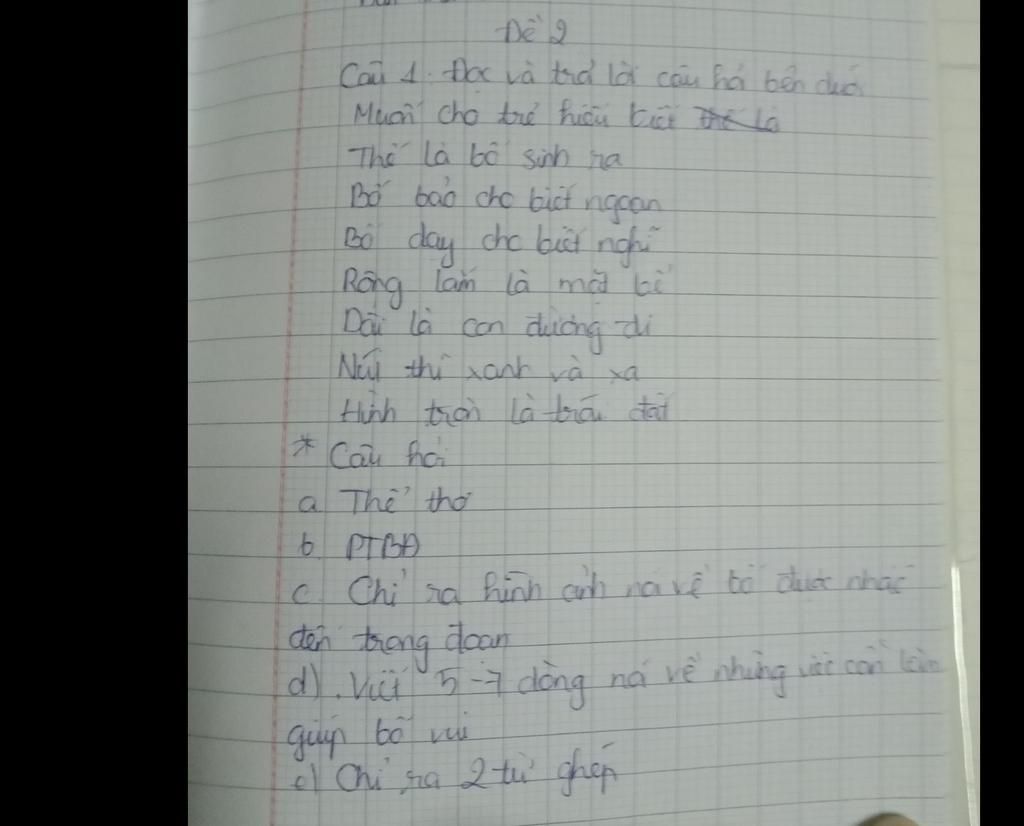 Đề 2
Câu 1. Đọc và trả lời câu hỏi bên dưới
Muốn cho trẻ hiểu biết
Thế là bố sinh ra
Bố bảo cho biết ngoan
Bố dạy cho biết nghĩ
Rộng lắm là mặt bể
Dài là con đường đi
Núi thì xanh và xa
Hình tròn là trái đất
* Câu hỏi
a Thể thơ
b PTBĐ
c. Chỉ ra hình ảnh nói về bố được nhắc
đến trong đoạn
d). Viết 5-7 dòng nói về những việc cần làm
giúp bố vui
e) Chỉ ra 2 từ ghép